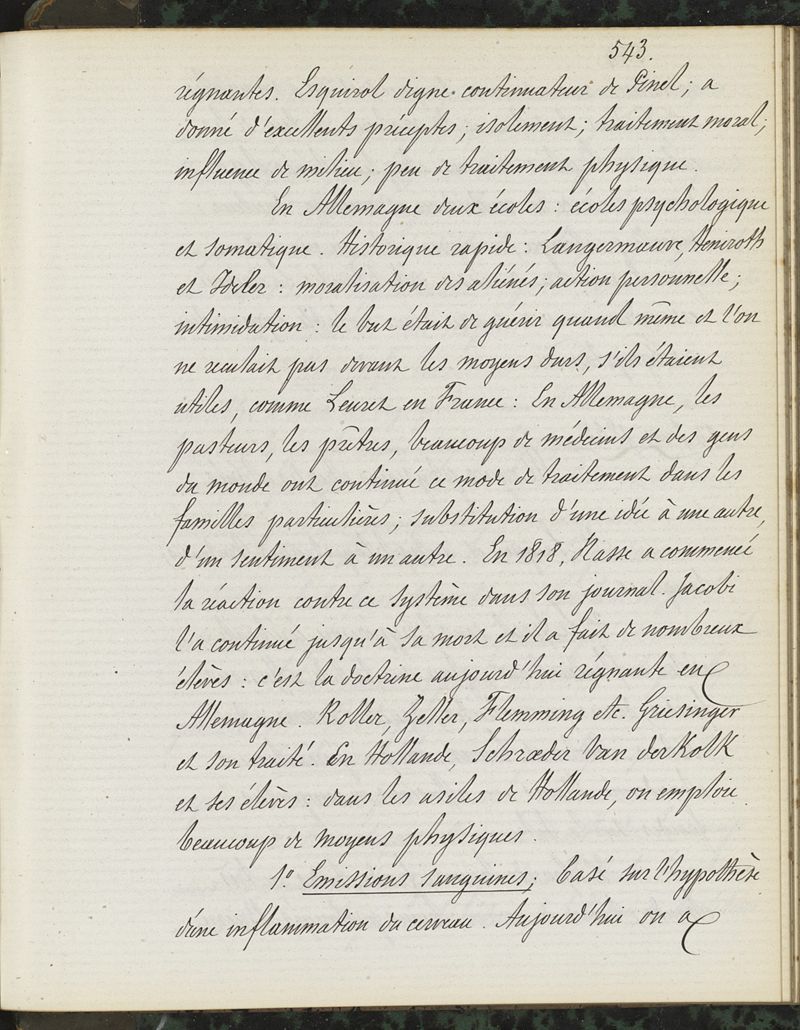 543.
régnantes. Esquirol digne continuateur de Pinel ; a
donné d'excellents préceptes ; isolement ; traitement moral ;
influence de milieu ; peu de traitement physique.
En Allemagne deux écoles : écoles psychologique
et somatique. Historique rapide : Langermauve, Heniroth
et Ideler : moralisation des aliénés ; action personnelle ;
intimidation : le but était de guérir quand même et l'on
ne reculait pas devant les moyens durs, s'ils étaient
utiles, comme Leuret en France : En Allemagne, les
pasteurs, les prêtres, beaucoup de médecins et des gens
du monde ont continué ce mode de traitement dans les
familles particulières ; substitution d'une idée à une autre,
d'un sentiment à un autre. En 1818, Nasse a commencé
la réaction contre ce système dans son journal. Jacobi
l'a continué jusqu'à sa mort et il a fait de nombreux
élèves : c'est la doctrine aujourd'hui régnante en
Allemagne. Roller, Zeller, Flemming etc. Griesinger
et son traité. En Hollande, Schrœder Van der Kolk
et ses élèves : dans les asiles de Hollande, on emploie
beaucoup de moyens physiques.
1° Emissions sanguines ; Basé sur l'hypothèse
d'une inflammation du cerveau. Aujourd'hui on a